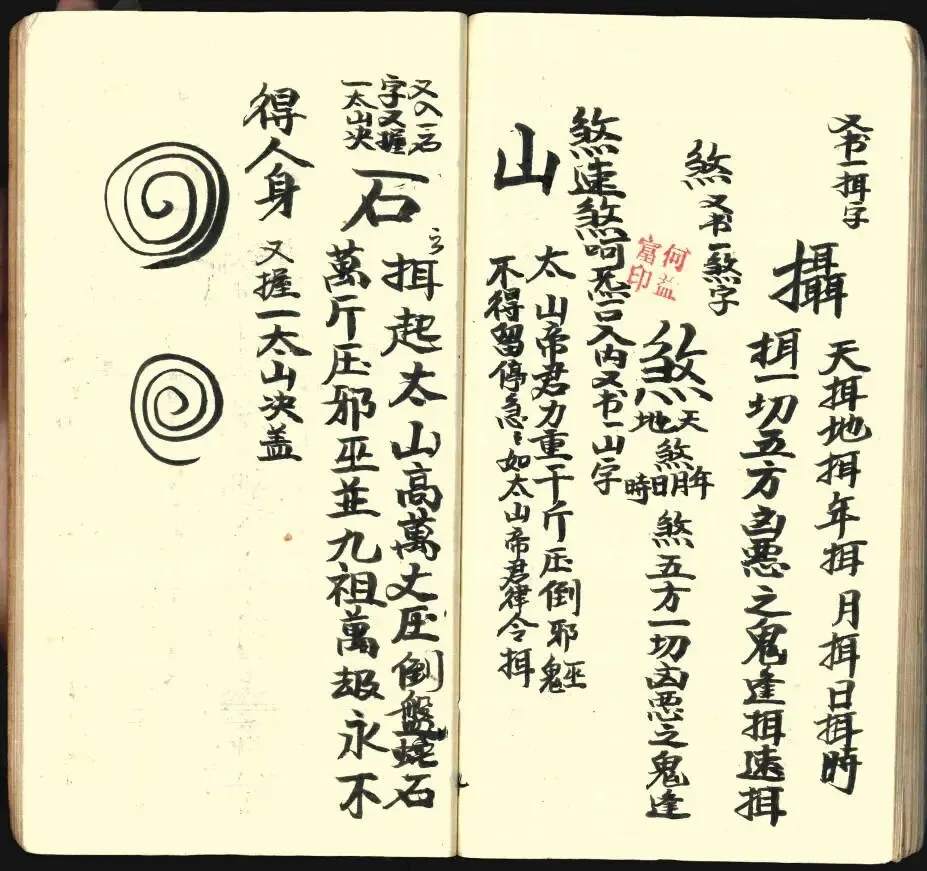 又书一挕字
攝
天挕地挕年挕月挕日挕時
挕一切五方凶惡之鬼逢挕速挕
煞 又书一煞字
煞
天地煞年月日時煞五方一切凶惡之鬼逢
煞速煞呵炁一口入内又书一山字
何益富印
山
太山帝君力重千斤压倒邪巫鬼
不得留停急〻如太山帝君律令挕
又入一石
字又握
一太山决
石
挕起太山高萬丈压倒盤蛇石
萬斤压邪巫並九祖萬劫永不
得人身 又握一太山决盖